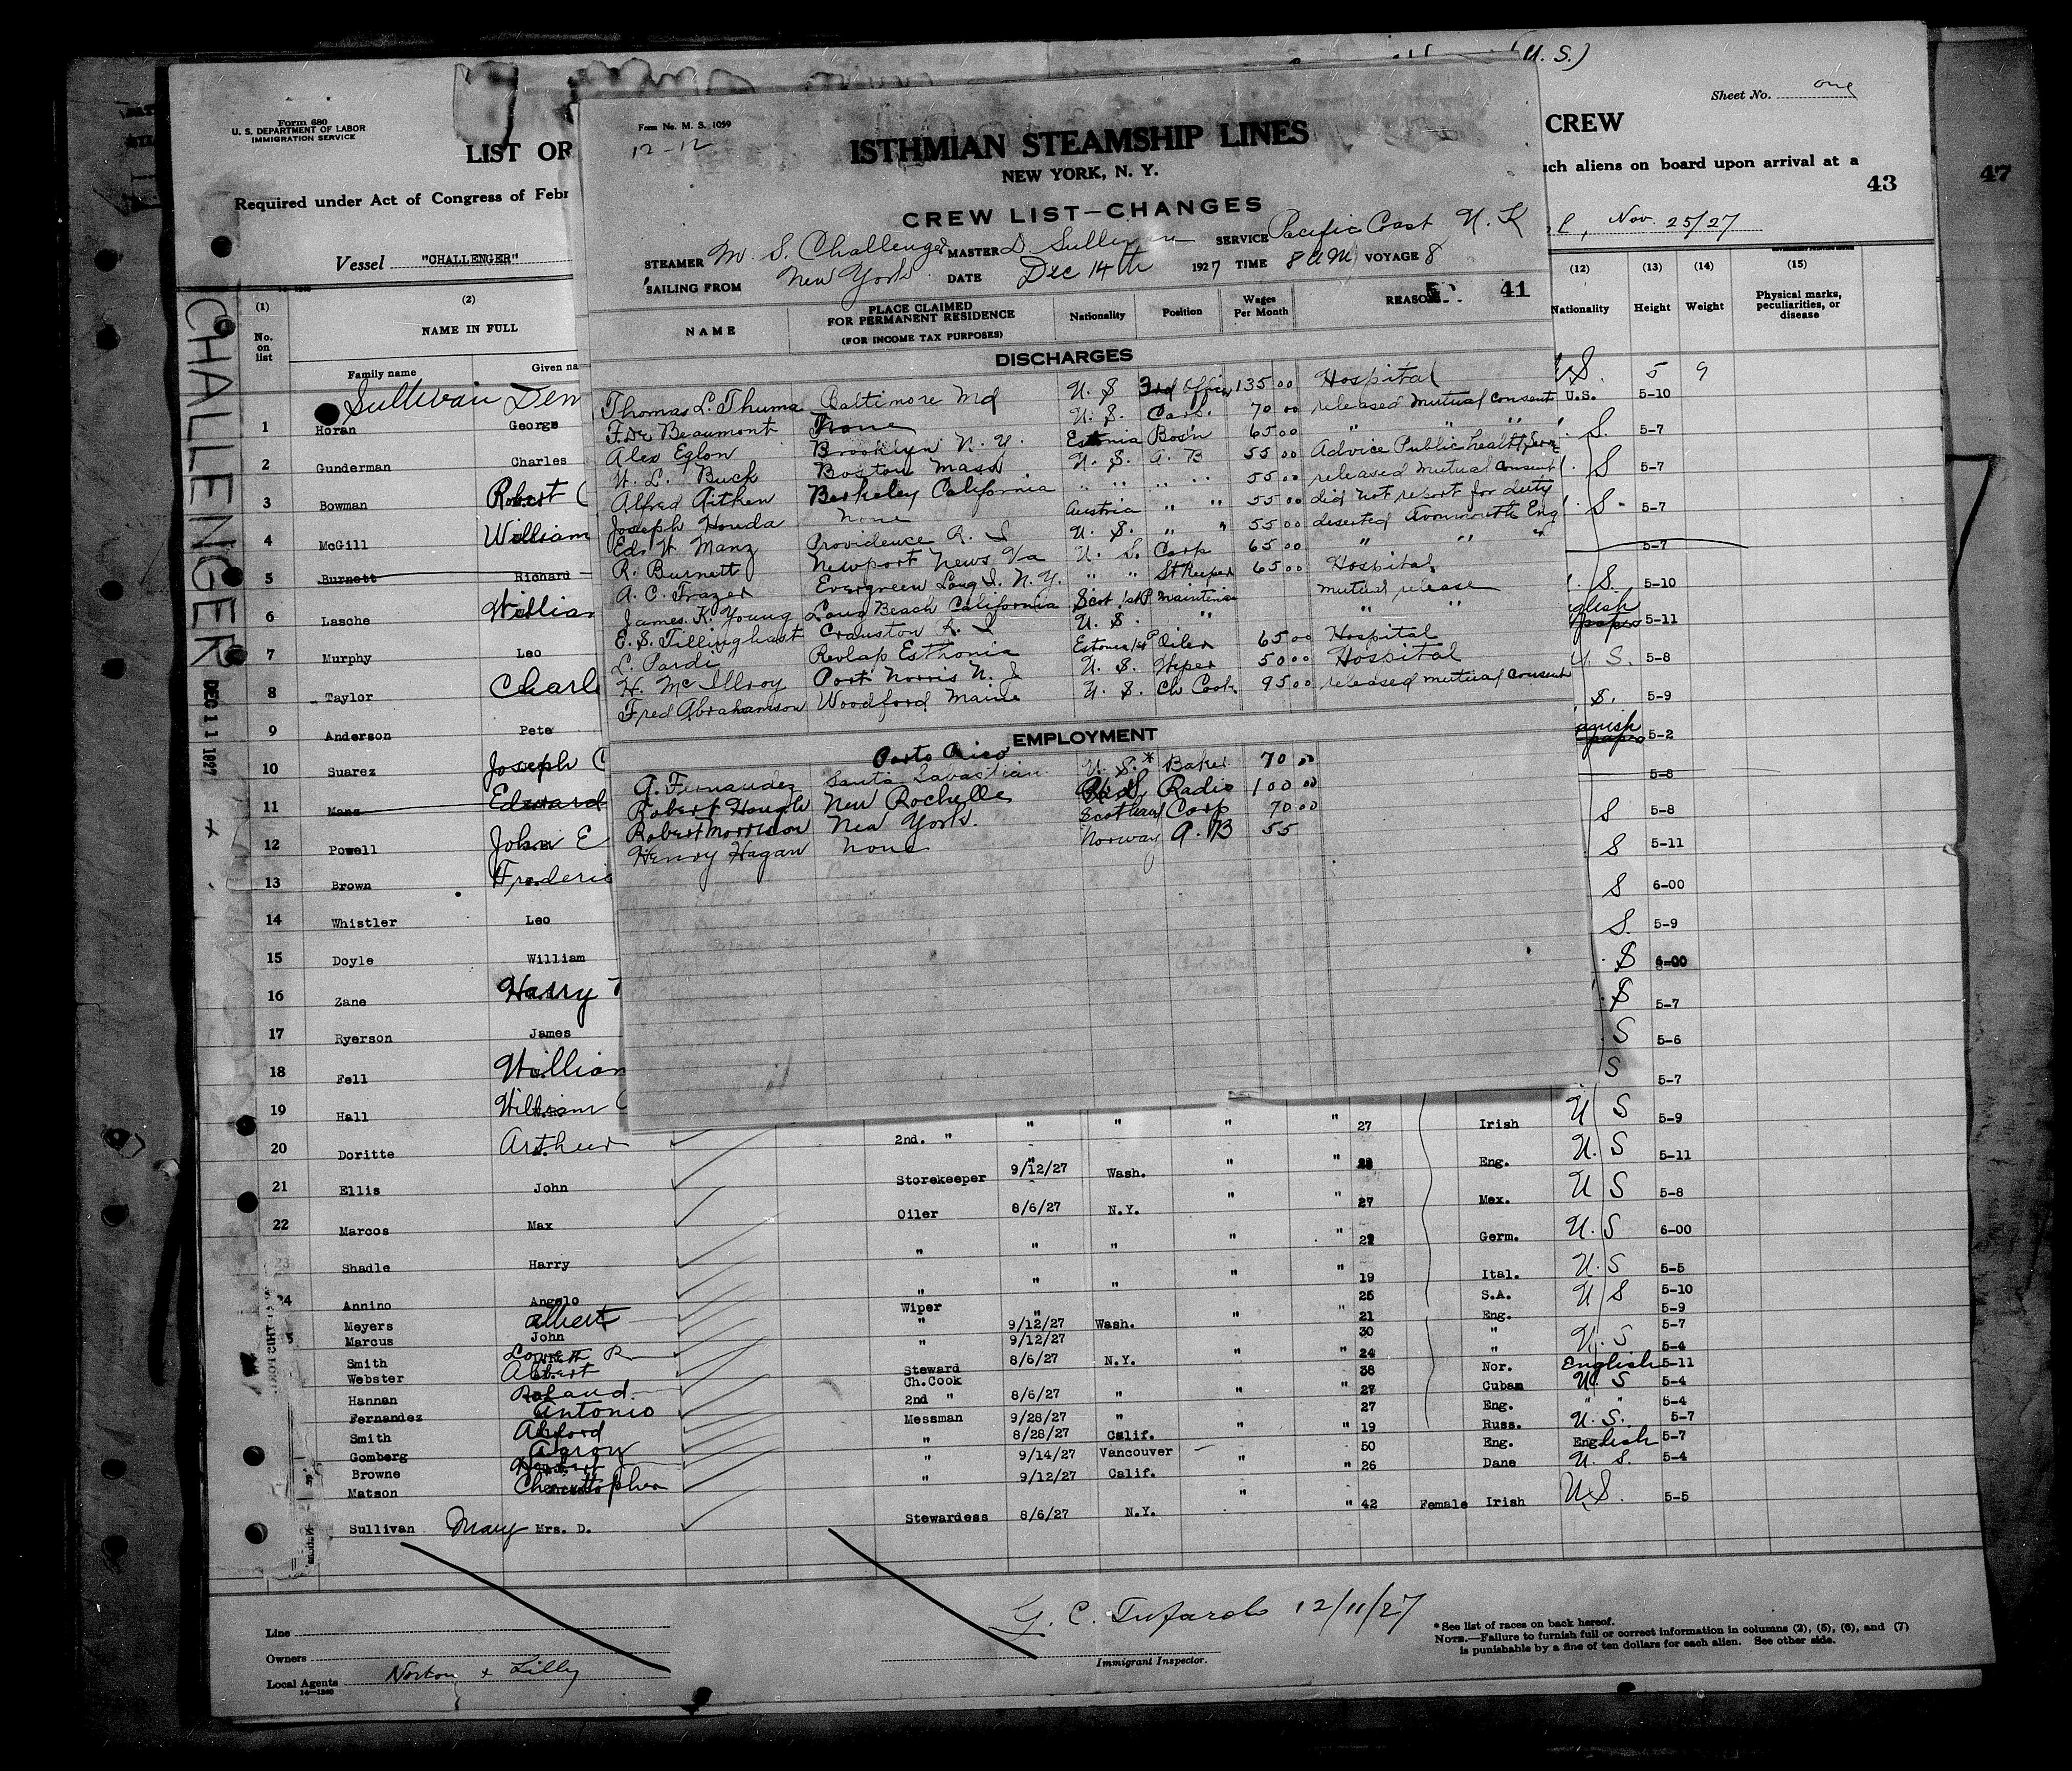 (U. S.)
Sheet No. one
Form 680
U. S. DEPARTMENT OF LABOR
IMMIGRATION SERVICE
LIST OR
CREW
Required under Act of Congress of Febr
such aliens on board upon arrival at a
43
47
Vessel "CHALLENGER"
Nov. 25/27
CHALLENGER
DEC 11 1927
Form No. M. S. 1059
12-12
ISTHMIAN STEAMSHIP LINES
NEW YORK, N. Y.
CREW LIST—CHANGES
STEAMER M. S. Challenger MASTER D. Sullivan SERVICE Pacific Coast U. K
SAILING FROM New York DATE Dec 14th 1927 TIME 8 AM VOYAGE 8
41
NAME PLACE CLAIMED FOR PERMANENT RESIDENCE (FOR INCOME TAX PURPOSES) Nationality Position Wages Per Month REASON
DISCHARGES
Thomas L. Thuma Baltimore Md U. S 3rd Officer 135 00 Hospital
F. De Beaumont None U. S. Carp. 70 00 released mutual consent
Alex Eglon Brooklyn N. Y. Estonia Bos'n 65 00 " " "
W. L. Buck Boston Mass U. S. A. B 55 00 Advice Public health Serv
Alfred Aitken Berkeley California " " " " 55 00 released mutual consent
Joseph Houda None Austria " " 55 00 did not report for duty
Ed. W. Manz Providence R. I U. S. " " 55 00 deserted Avonmouth Eng
R. Burnett Newport News Va U. S. Carp 65 00 " " "
A. C. Frazer Evergreen Long I. N. Y. " " St Keeper 65 00 Hospital
James K. Young Long Beach California Scot 1st P Maintenia mutual release
E. S. Tillinghast Cranston R. I U. S. " " "
L. Pardi Revlap Esthonia Estonia 1st P Oiler 65 00 Hospital
H. McIllroy Port Norris N. J U. S. Wiper 50 00 Hospital
Fred Abrahamson Woodford Maine U. S. Ch Cook 95 00 released mutual consent
EMPLOYMENT
Porto Rico
A. Fernandez Santa Sabastian U. S.* Baker 70 00
Robert Hough New Rochelle U. S Radio 100 00
Robert Morrison New York. Scotland Carp 70 00
Henry Hagan None Norway A. B 55
(1) No. on list
(2) NAME IN FULL
Family name Given na
(12) Nationality (13) Height (14) Weight (15) Physical marks, peculiarities, or disease
Sullivan Den U.S. 5 9
1 Horan George U.S. 5-10
2 Gunderman Charles S. 5-7
3 Bowman Robert C S 5-7
4 McGill William S 5-7
5 Burnett Richard 5-7
6 Lasche William S. 5-10
7 Murphy Leo 5-11
8 Taylor Charl U. S. 5-8
9 Anderson Pete S. 5-9
10 Suarez Joseph C 5-2
11 Manz Edward 5-8
12 Powell John E S 5-8
13 Brown Frederic S 5-11
14 Whistler Leo S 6-00
15 Doyle William S. 5-9
16 Zane Harry S 6-00
17 Ryerson James S 5-7
18 Fell William S 5-6
19 Hall William C S 5-7
20 Doritte Arthur 2nd. " " " " " 27 Irish U S 5-9
21 Ellis John Storekeeper 9/12/27 Wash. " " 28 Eng. U. S 5-11
22 Marcos Max Oiler 8/6/27 N.Y. " " 27 Mex. U S 5-8
23 Shadle Harry " " " " " 29 Germ. U. S 6-00
24 Annino Angelo " " " " " 19 Ital. U. S 5-5
Meyers Albert Wiper " 25 S.A. U S 5-10
Marcus John " 9/12/27 Wash. " " 21 Eng. 5-9
Smith " 9/12/27 30 " U. S 5-7
Webster Albert Steward 8/6/27 N.Y. " " 24 5-4
Ch. Cook 38 Nor. English 5-11
Hannan Roland 2nd " 8/6/27 " " " 27 Cuban U. S 5-4
Fernandez Antonio Messman 9/28/27 " 27 Eng. " " 5-4
Smith Alford " 8/28/27 Calif. " " 19 Russ. U. S. 5-7
Gomberg Aaron " 9/14/27 Vancouver " 50 Eng. English 5-7
Browne Herbert " 9/12/27 Calif. " 26 Dane U. S. 5-4
Matson Christopher
Sullivan Mary Mrs. D. Stewardess 8/6/27 N.Y. " " 42 Female Irish U.S. 5-5
Line
Owners
Local Agents Norton & Lilly
14—1240
G. C. Tufarolo 12/11/27
Immigrant Inspector.
* See list of races on back hereof.
NOTE.—Failure to furnish full or correct information in columns (2), (5), (6), and (7)
is punishable by a fine of ten dollars for each alien. See other side.